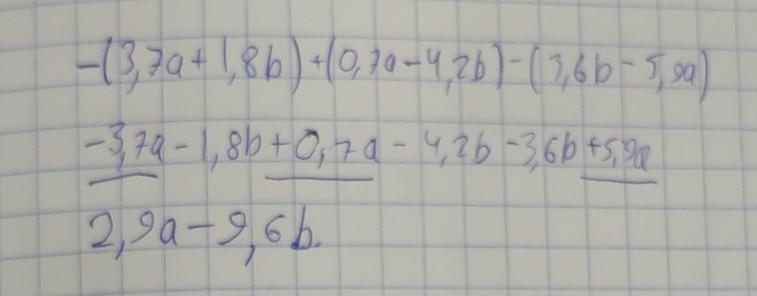 -(3,7a+1,8b)+(0,7a-4,2b)-(3,6b-5,9a)
-3,7a-1,8b+0,7a-4,2b-3,6b+5,9a
2,9a-9,6b.